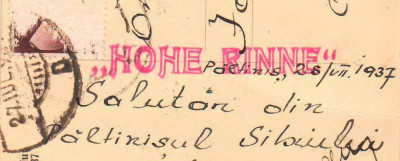 „HOHE RINNE"
Păltiniș, 28/VII. 1937
Salutări din
Păltinișul Sibiului